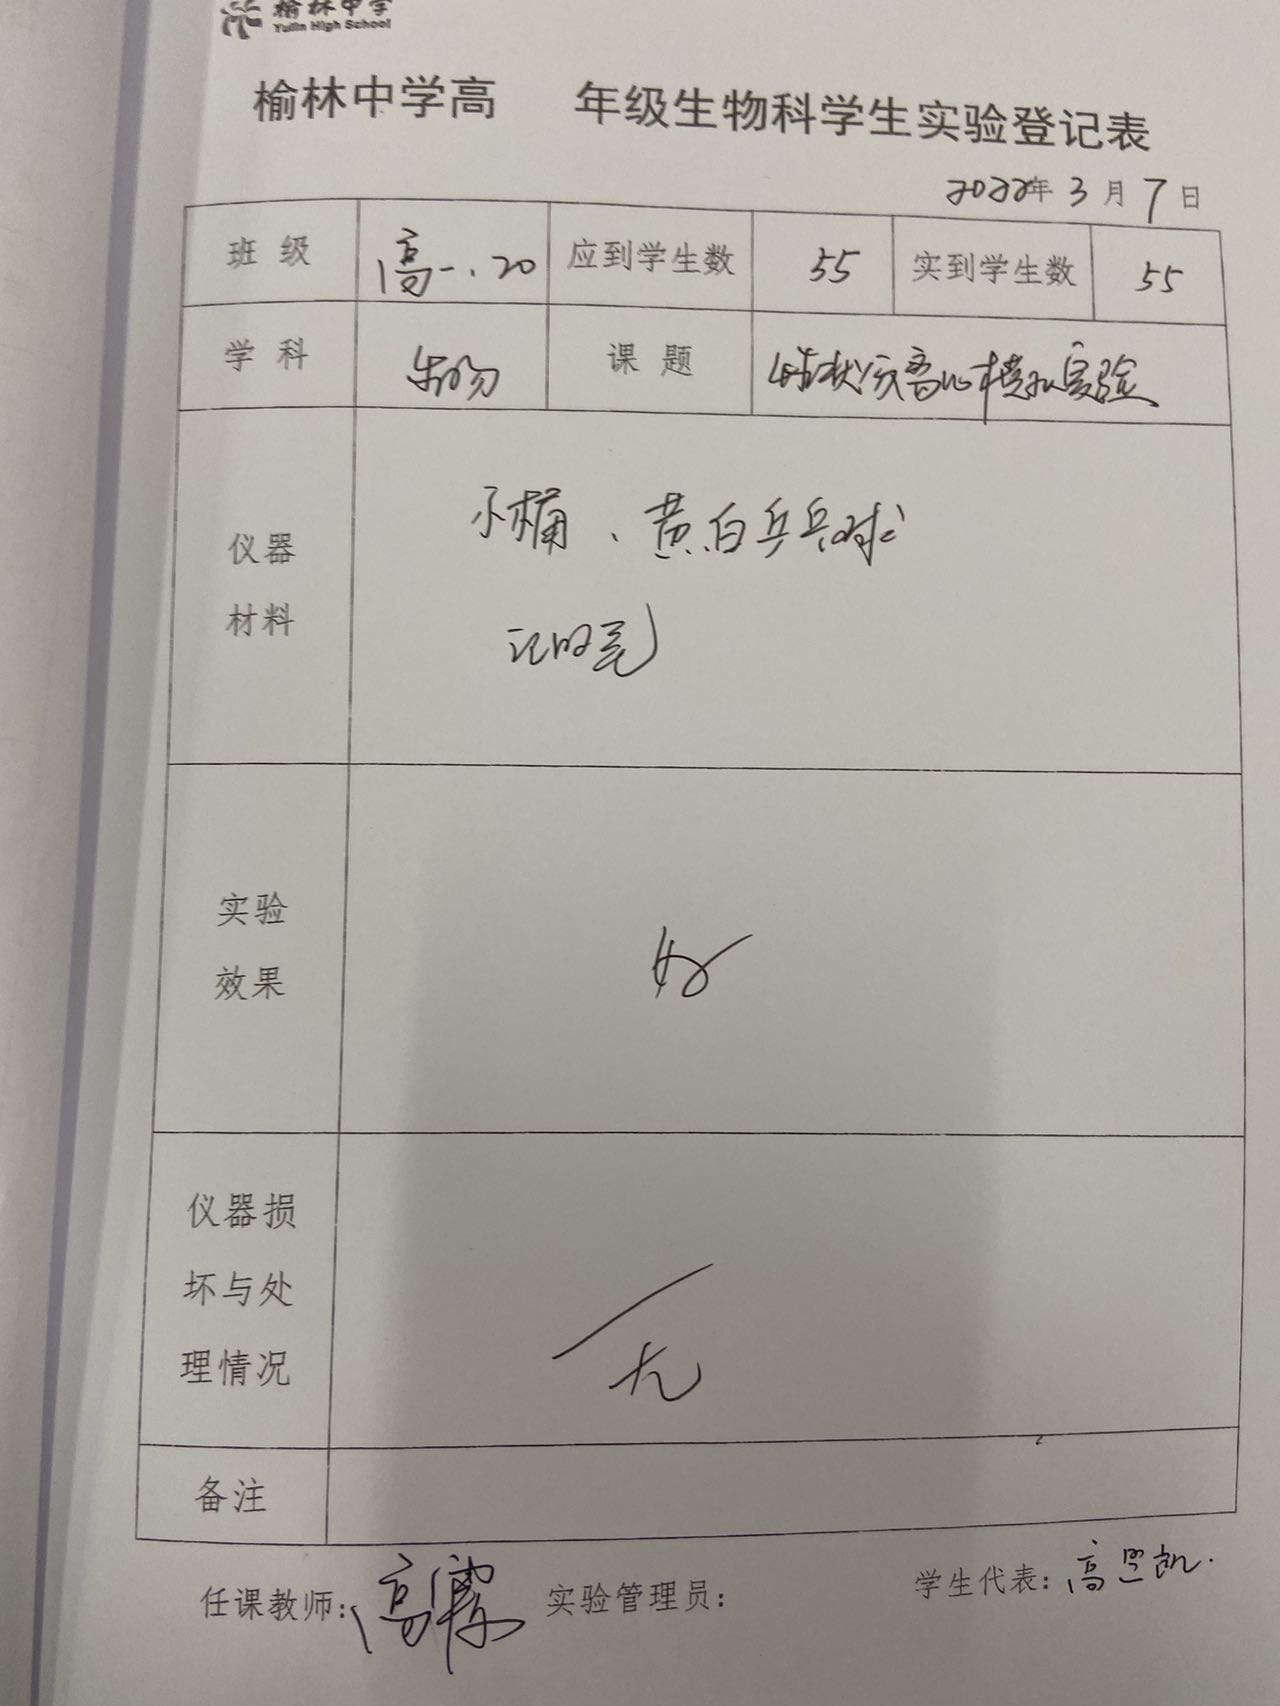 榆林中学
Yulin High School
榆林中学高 年级生物科学生实验登记表
2022年 3 月 7 日
班 级 高一.20 应到学生数 55 实到学生数 55
学 科 生物 课 题 性状分离比模拟实验
仪器
材料
小桶、黄白乒乓球
记号笔
实验
效果
好
仪器损
坏与处
理情况
无
备注
任课教师: 高 实验管理员: 学生代表: 高